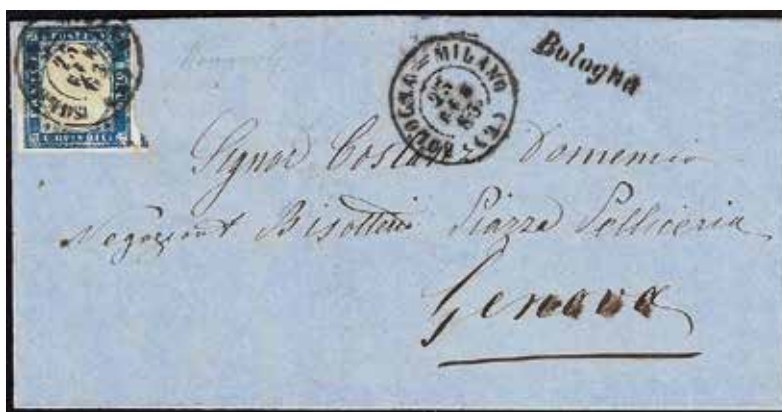 Bologna
BOLOGNA = MILANO
Signor Costa Domenico
Negoziant Bisotterie Piazza Pelliceria
Genova